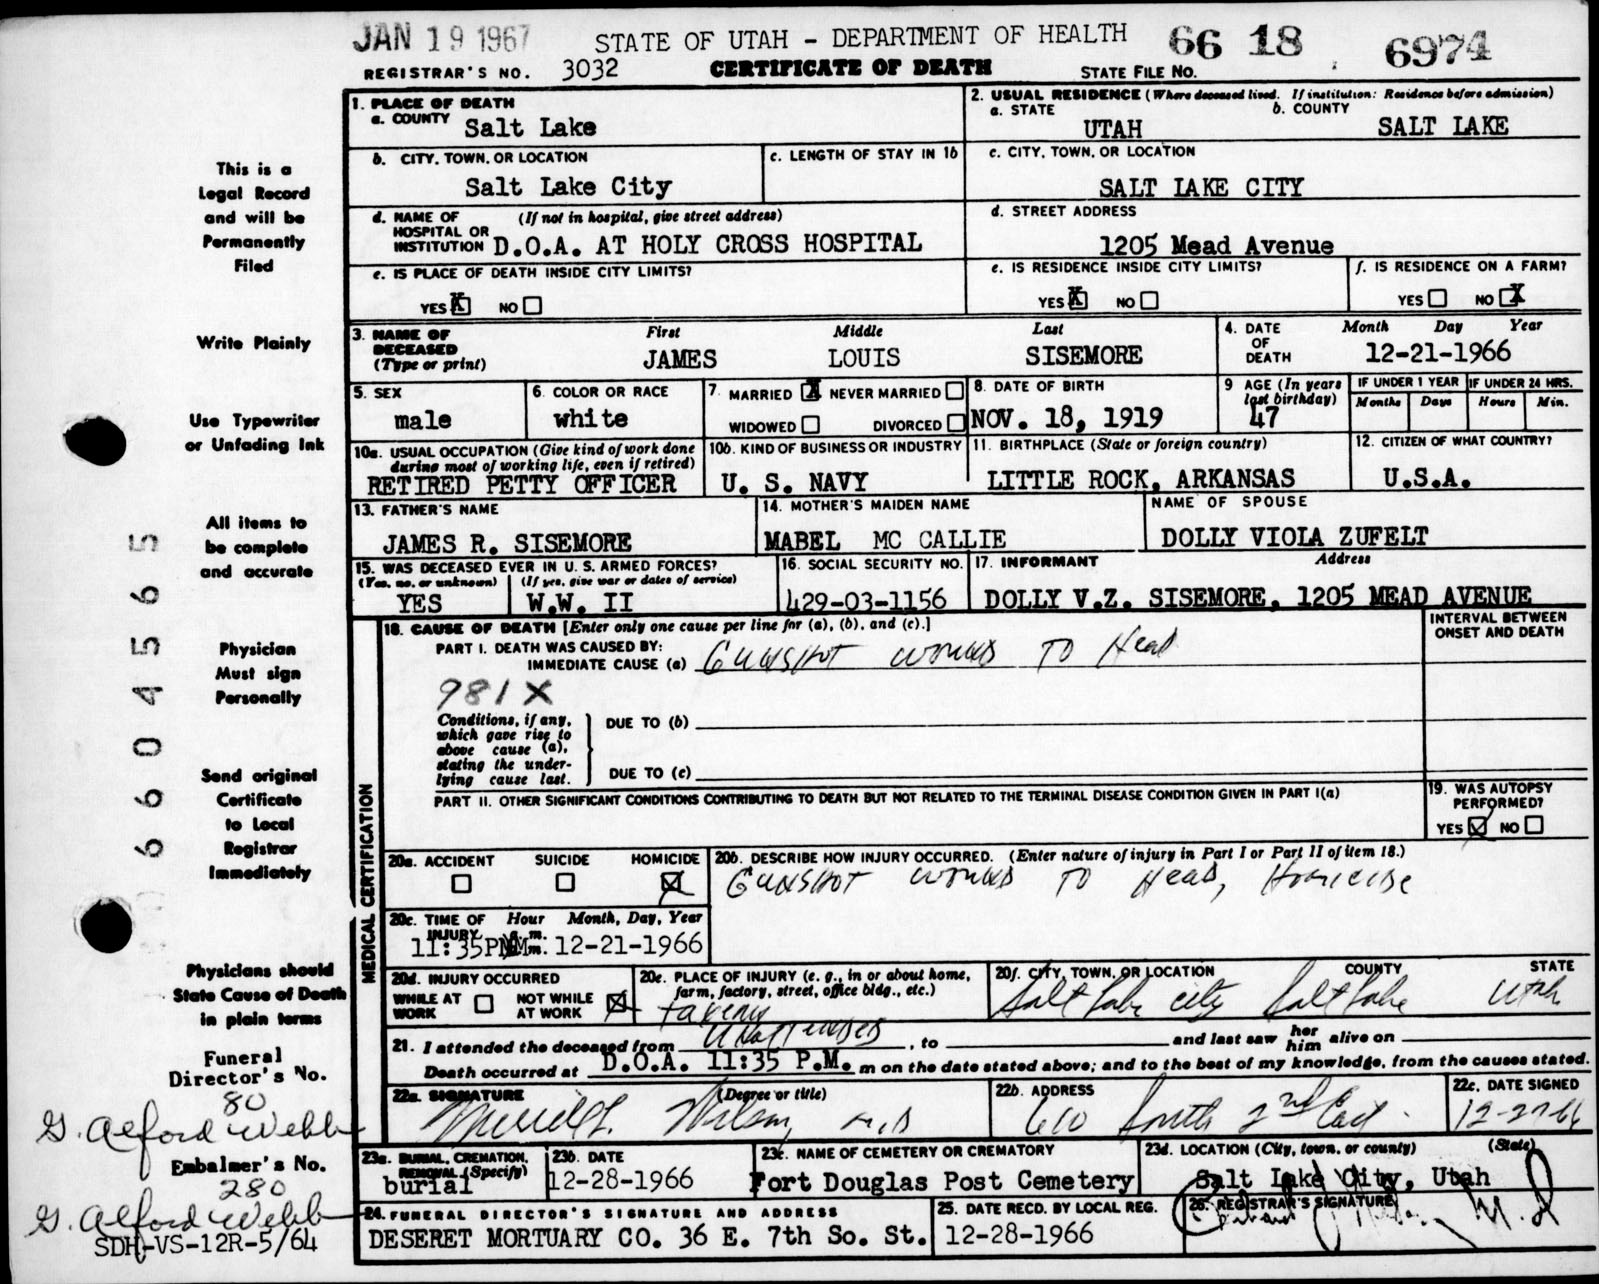 JAN 19 1967
STATE OF UTAH - DEPARTMENT OF HEALTH
66 18 6974
REGISTRAR'S NO. 3032
CERTIFICATE OF DEATH
STATE FILE NO.
1. PLACE OF DEATH
a. COUNTY Salt Lake
2. USUAL RESIDENCE (Where deceased lived. If institution: Residence before admission)
a. STATE UTAH
b. COUNTY SALT LAKE
b. CITY, TOWN, OR LOCATION
Salt Lake City
c. LENGTH OF STAY IN 1b
c. CITY, TOWN, OR LOCATION
SALT LAKE CITY
d. NAME OF HOSPITAL OR INSTITUTION (If not in hospital, give street address)
D.O.A. AT HOLY CROSS HOSPITAL
d. STREET ADDRESS
1205 Mead Avenue
e. IS PLACE OF DEATH INSIDE CITY LIMITS?
YES X NO
e. IS RESIDENCE INSIDE CITY LIMITS?
YES X NO
f. IS RESIDENCE ON A FARM?
YES NO X
3. NAME OF DECEASED (Type or print)
First Middle Last
JAMES LOUIS SISEMORE
4. DATE OF DEATH
Month Day Year
12-21-1966
5. SEX
male
6. COLOR OR RACE
white
7. MARRIED X NEVER MARRIED
WIDOWED DIVORCED
8. DATE OF BIRTH
NOV. 18, 1919
9 AGE (In years last birthday)
47
IF UNDER 1 YEAR
Months Days
IF UNDER 24 HRS.
Hours Min.
10a. USUAL OCCUPATION (Give kind of work done during most of working life, even if retired)
RETIRED PETTY OFFICER
10b. KIND OF BUSINESS OR INDUSTRY
U. S. NAVY
11. BIRTHPLACE (State or foreign country)
LITTLE ROCK, ARKANSAS
12. CITIZEN OF WHAT COUNTRY?
U.S.A.
13. FATHER'S NAME
JAMES R. SISEMORE
14. MOTHER'S MAIDEN NAME
MABEL MC CALLIE
NAME OF SPOUSE
DOLLY VIOLA ZUFELT
15. WAS DECEASED EVER IN U. S. ARMED FORCES?
(Yes, no, or unknown) (If yes, give war or dates of service)
YES W.W. II
16. SOCIAL SECURITY NO.
429-03-1156
17. INFORMANT Address
DOLLY V.Z. SISEMORE, 1205 MEAD AVENUE
18. CAUSE OF DEATH [Enter only one cause per line for (a), (b), and (c).]
INTERVAL BETWEEN ONSET AND DEATH
PART I. DEATH WAS CAUSED BY:
IMMEDIATE CAUSE (a) Gunshot wound to Head
981X
Conditions, if any, which gave rise to above cause (a), stating the underlying cause last.
DUE TO (b)
DUE TO (c)
PART II. OTHER SIGNIFICANT CONDITIONS CONTRIBUTING TO DEATH BUT NOT RELATED TO THE TERMINAL DISEASE CONDITION GIVEN IN PART I(a)
19. WAS AUTOPSY PERFORMED?
YES NO
20a. ACCIDENT SUICIDE HOMICIDE
20b. DESCRIBE HOW INJURY OCCURRED. (Enter nature of injury in Part I or Part II of item 18.)
Gunshot wound to Head, Homicide
20c. TIME OF INJURY Hour Month, Day, Year
11:35PM 12-21-1966
20d. INJURY OCCURRED
WHILE AT WORK NOT WHILE AT WORK
20e. PLACE OF INJURY (e. g., in or about home, farm, factory, street, office bldg., etc.)
tavern
20f. CITY, TOWN, OR LOCATION COUNTY STATE
Salt Lake City Salt Lake Utah
21. I attended the deceased from Unattended, to and last saw her him alive on
Death occurred at D.O.A. 11:35 P.M. m on the date stated above; and to the best of my knowledge, from the causes stated.
22a. SIGNATURE (Degree or title)
Wilson M.D
22b. ADDRESS
610 South 2nd East
22c. DATE SIGNED
12-27-66
23a. BURIAL, CREMATION, REMOVAL (Specify)
burial
23b. DATE
12-28-1966
23c. NAME OF CEMETERY OR CREMATORY
Fort Douglas Post Cemetery
23d. LOCATION (City, town, or county) (State)
Salt Lake City, Utah
24. FUNERAL DIRECTOR'S SIGNATURE AND ADDRESS
DESERET MORTUARY CO. 36 E. 7th So. St.
25. DATE RECD. BY LOCAL REG.
12-28-1966
26. REGISTRAR'S SIGNATURE
MEDICAL CERTIFICATION
This is a
Legal Record
and will be
Permanently
Filed
Write Plainly
Use Typewriter
or Unfading Ink
All items to
be complete
and accurate
Physician
Must sign
Personally
Send original
Certificate
to Local
Registrar
Immediately
Physicians should
State Cause of Death
in plain terms
Funeral
Director's No.
80
G. Alford Webb
Embalmer's No.
280
G. Alford Webb
SDH-VS-12R-5/64
660 4565